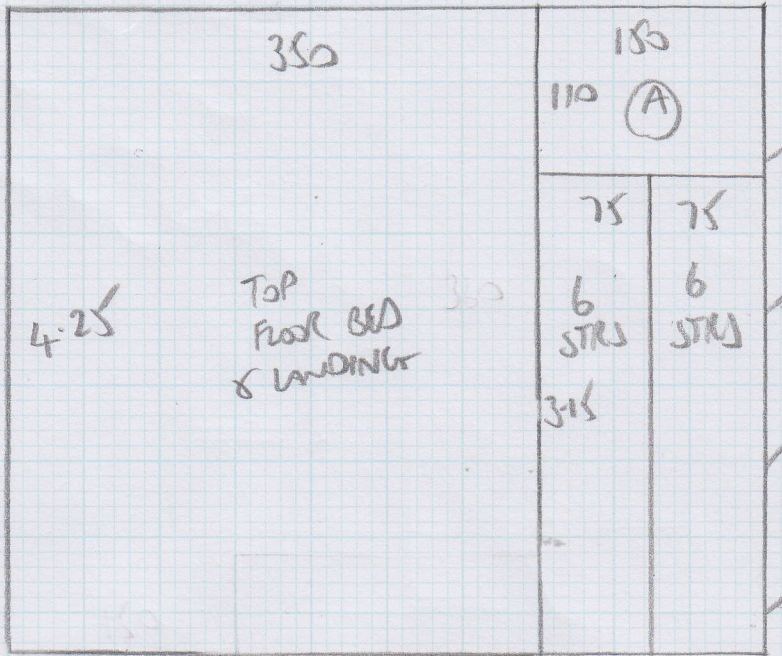 350
150
110 A
75 75
TOP
FLOOR BED
& LANDING
4.25
6 6
STRS STRS
3.15